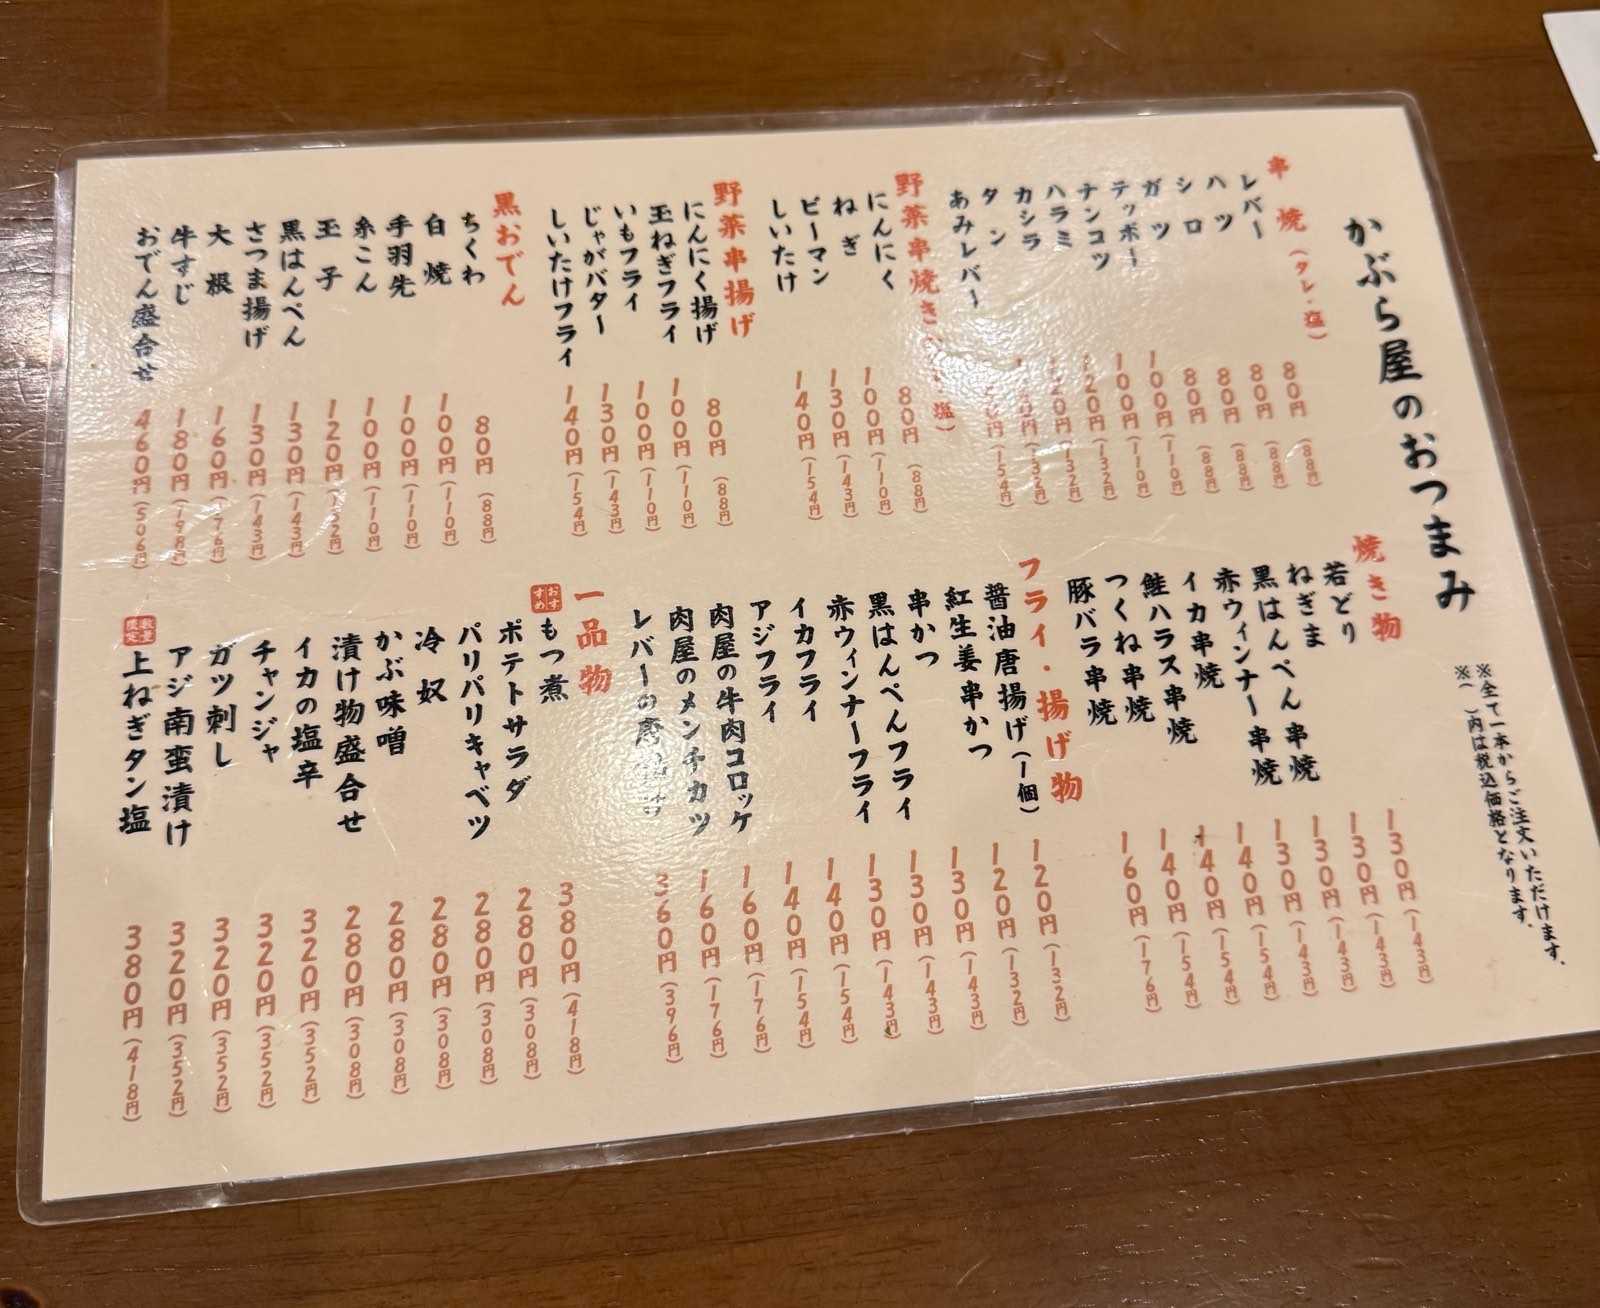 かぶら屋のおつまみ
※全て一本からご注文いただけます。
※( )内は税込価格となります。
串焼(タレ・塩)
レバー 80円(88円)
ハツ 80円(88円)
シロ 80円(88円)
ガツ 80円(88円)
テッポー 100円(110円)
ナンコツ 100円(110円)
ハラミ 120円(132円)
カシラ 120円(132円)
タン (132円)
あみレバー (154円)
野菜串焼き 塩)
にんにく 80円(88円)
ねぎ 100円(110円)
ピーマン 130円(143円)
しいたけ 140円(154円)
野菜串揚げ
にんにく揚げ 80円(88円)
玉ねぎフライ 100円(110円)
いもフライ 100円(110円)
じゃがバター 130円(143円)
しいたけフライ 140円(154円)
黒おでん
ちくわ 80円(88円)
白焼 100円(110円)
手羽先 100円(110円)
糸こん 100円(110円)
玉子 120円(132円)
黒はんぺん 130円(143円)
さつま揚げ 130円(143円)
大根 160円(176円)
牛すじ 180円(198円)
おでん盛合せ 460円(506円)
焼き物
若どり 130円(143円)
ねぎま 130円(143円)
黒はんぺん串焼 130円(143円)
赤ウィンナー串焼 130円(143円)
イカ串焼 140円(154円)
鮭ハラス串焼 140円(154円)
つくね串焼 140円(154円)
豚バラ串焼 160円(176円)
フライ・揚げ物
醤油唐揚げ(1個) 120円(132円)
紅生姜串かつ 120円(132円)
串かつ 130円(143円)
黒はんぺんフライ 130円(143円)
赤ウィンナーフライ 130円(143円)
イカフライ 140円(154円)
アジフライ 140円(154円)
肉屋の牛肉コロッケ 160円(176円)
肉屋のメンチカツ 160円(176円)
レバーの唐揚げ 360円(396円)
一品物
おすすめ もつ煮 380円(418円)
ポテトサラダ 280円(308円)
パリパリキャベツ 280円(308円)
冷奴 280円(308円)
かぶ味噌 280円(308円)
漬け物盛合せ 280円(308円)
イカの塩辛 320円(352円)
チャンジャ 320円(352円)
ガツ刺し 320円(352円)
アジ南蛮漬け 320円(352円)
数量限定 上ねぎタン塩 380円(418円)